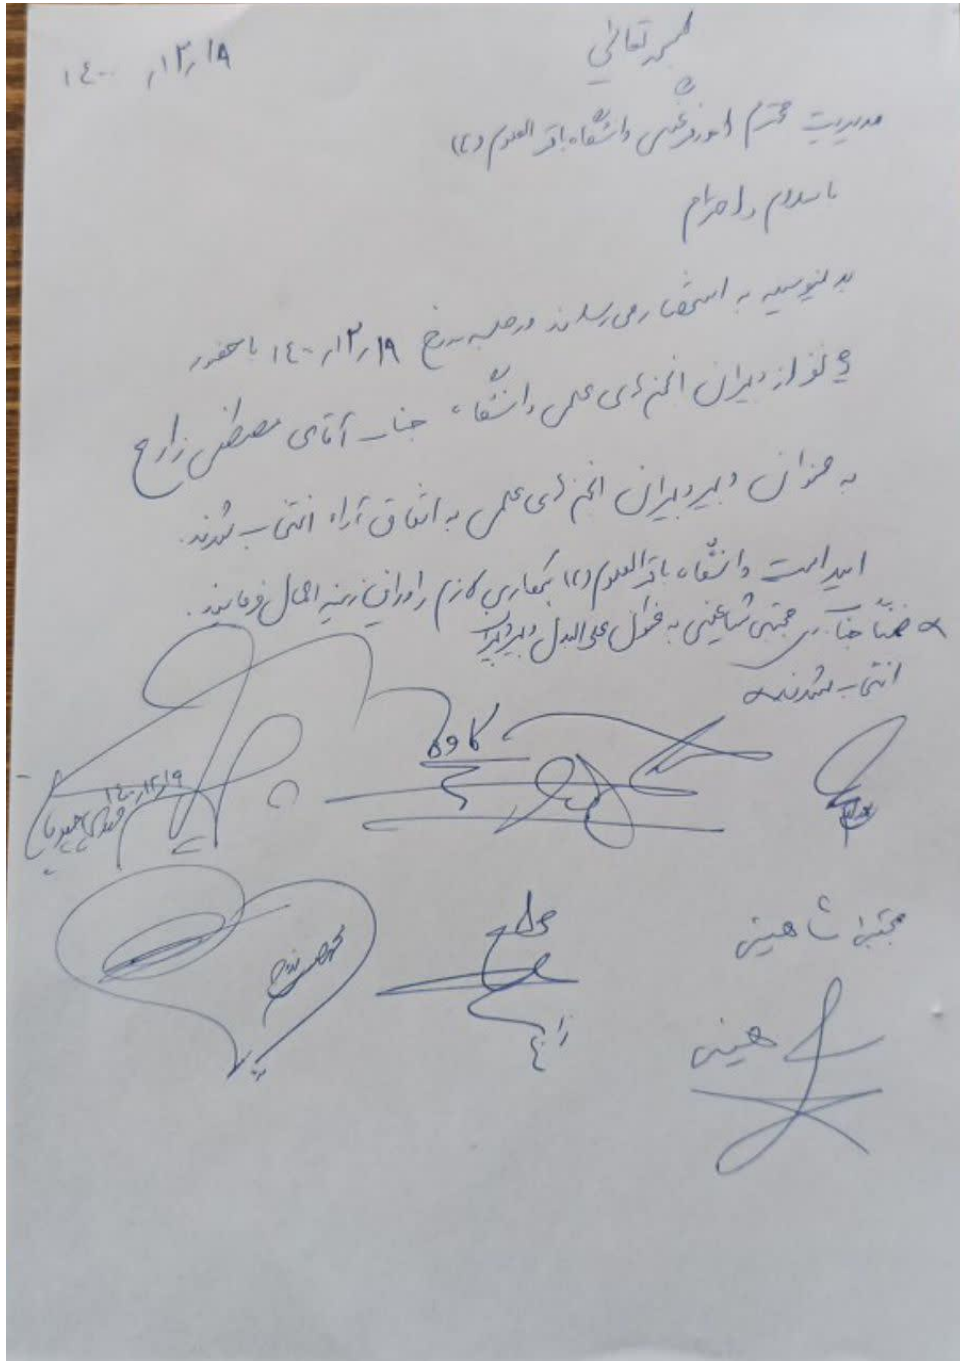 بسمه تعالی
۱۴۰۰/۱۲/۱۹
مدیریت محترم امور فرهنگی دانشگاه باقر العلوم (ع)
با سلام و احترام
بدینوسیله به استحضار می رساند در جلسه مورخ ۱۴۰۰/۱۲/۱۹ با حضور
نفر از دبیران انجمن های علمی دانشگاه جناب آقای مصطفی زارع
به عنوان دبیر دبیران انجمن های علمی به اتفاق آراء انتخاب شدند.
امید است دانشگاه باقر العلوم (ع) همکاری لازم را در این زمینه اعمال فرمایند.
ضمناً جناب مجتبی شاهینی به عنوان علی البدل دبیر دبیران
انتخاب شدند
کاوه
۱۴۰۰/۱۲/۱۹
مجتبی شاهینی